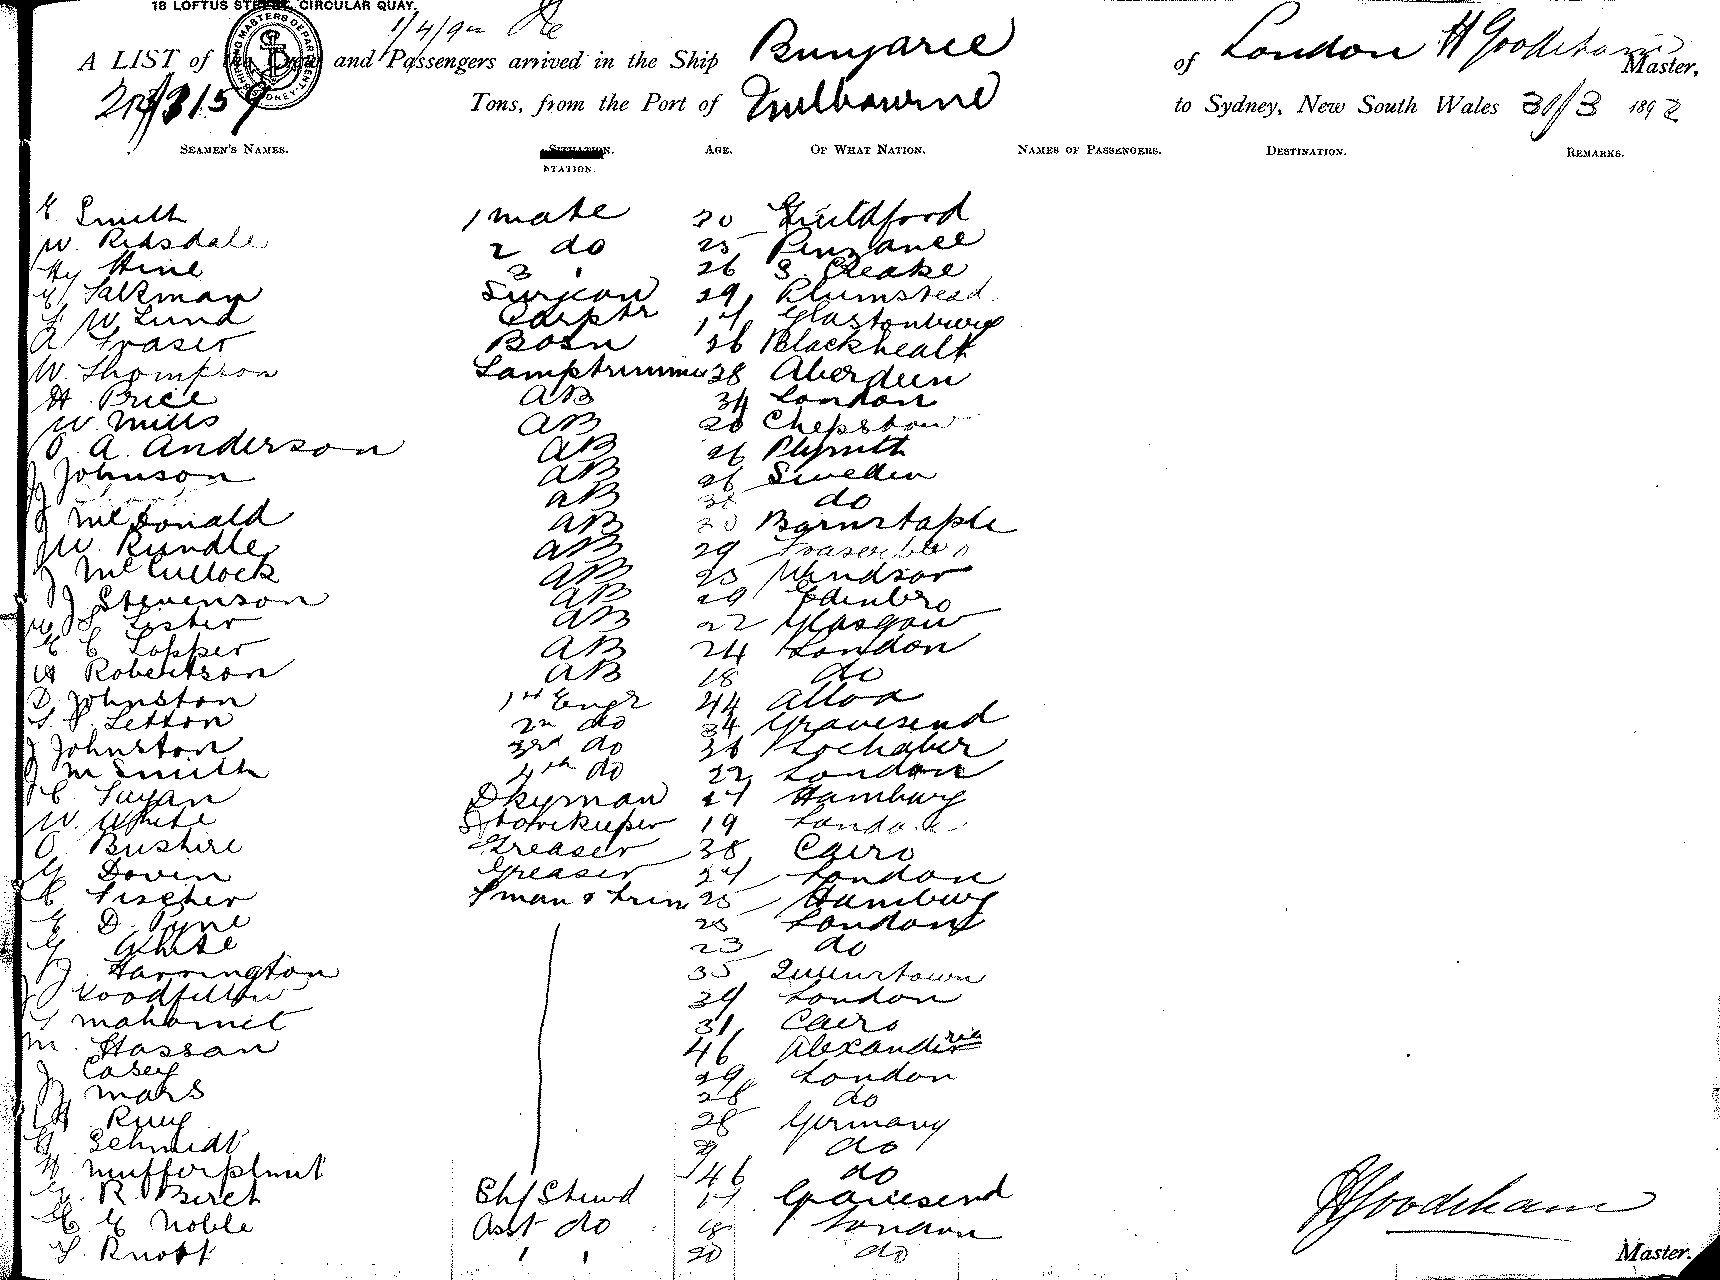 18 LOFTUS STREET, CIRCULAR QUAY.
1/4/92
A LIST of the Crew and Passengers arrived in the Ship Bungaree of London H Goodeham Master,
2nd/3159 Tons, from the Port of Melbourne to Sydney, New South Wales 31/3 1892
SEAMEN'S NAMES. STATION. AGE. OF WHAT NATION. NAMES OF PASSENGERS. DESTINATION. REMARKS.
E Smith 1 mate 30 Guildford
W. Ridsdale 2 do 25 Penzance
Hy Hine 3 " 26 S. Creake
Saltzman Surgeon 29 Plumstead
W Lund Carptr Glastonbury
A Fraser Bosn 26 Blackhealt
W. Thompson Lamptrimmer 38 Aberdeen
H. Price AB 34 London
W. Mills AB 20 Chepstow
O. A. Anderson AB 26 Plymth
J Johnson AB 26 Sweden
AB do
J McDonald AB 20 Barnstaple
W. Rundle AB 29
J McCullock AB 25 Windsor
J Stevenson AB 29 Edinbro
Lister AB 22 Glasgow
E. C Topper AB 24 London
W Robertson AB 18 do
D. Johnston 1st Engr 44 Alloa
Letton 2n do 34 Gravesend
J Johnston 3rd do 36 Lochaber
J M Smith 4th do 22 London
C. Dkyman 27 Hamburg
W. White Storekeeper 19 London
O. Bushire Greaser 38 Cairo
Doven Greaser 27 London
C Fischer Fman & trim 25 Hamburg
E. D. Pyne 25 London
G White 23 do
J. Harrington 35 Queenstown
J Goodfellow 39 London
Mahomet 31 Cairo
M. Hassan 46 Alexandria
J Casey 29 London
J Mars 28 do
H Ruug 28 Germany
H. Schmidt do
46 do
G. R. Birch Chf Stewd 17 Gravesend
E Noble Asst do 18 London
F. Knott " " 20 do
H Goodeham
Master.